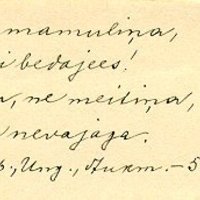 mamuliņa,
i bēdājees!
ne meitiņa,
nevajaga.
Ung., Aukm. – 5